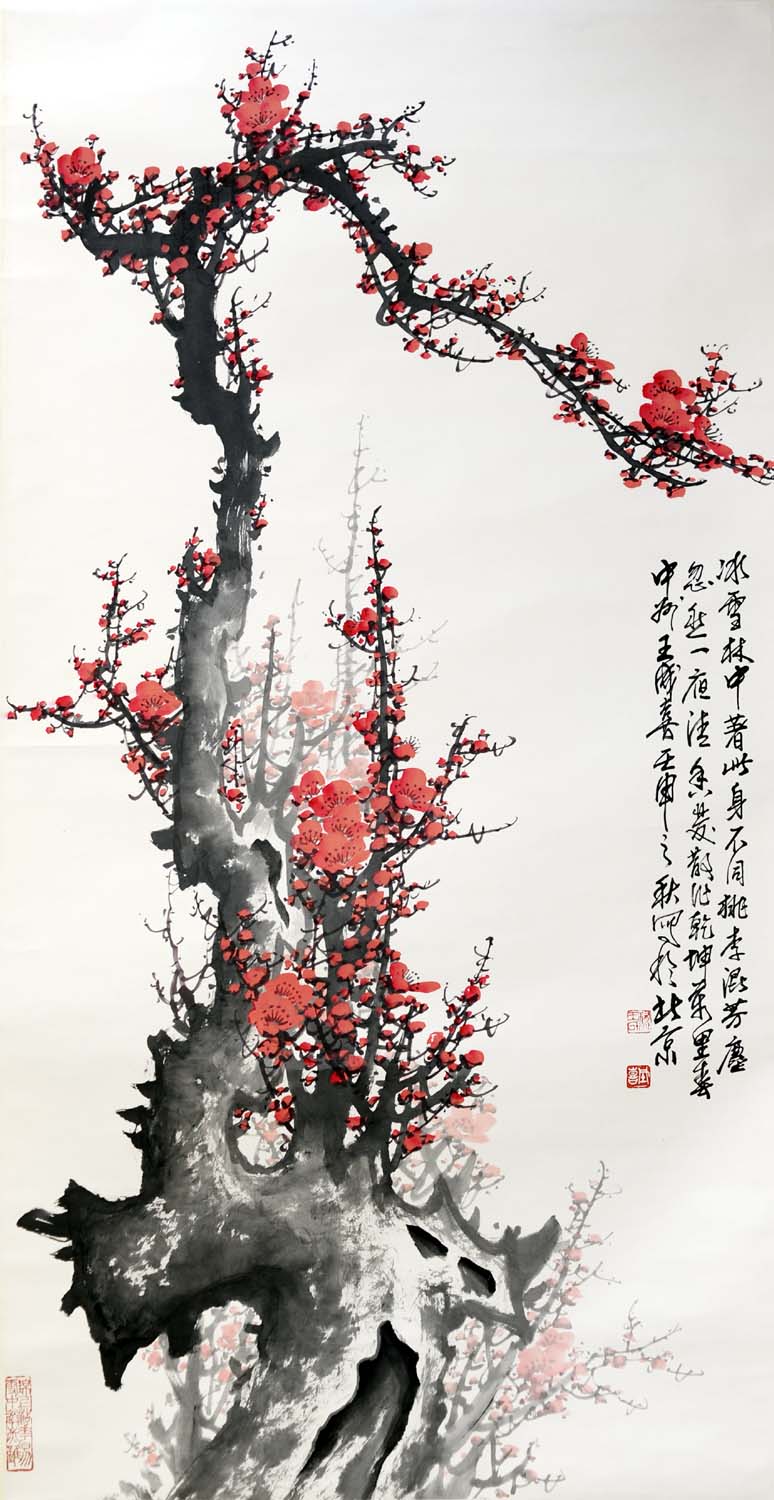 冰雪林中著此身不同桃李混芳塵
忽然一夜清香發散作乾坤萬里春
中州王成喜壬申之秋寫於北京